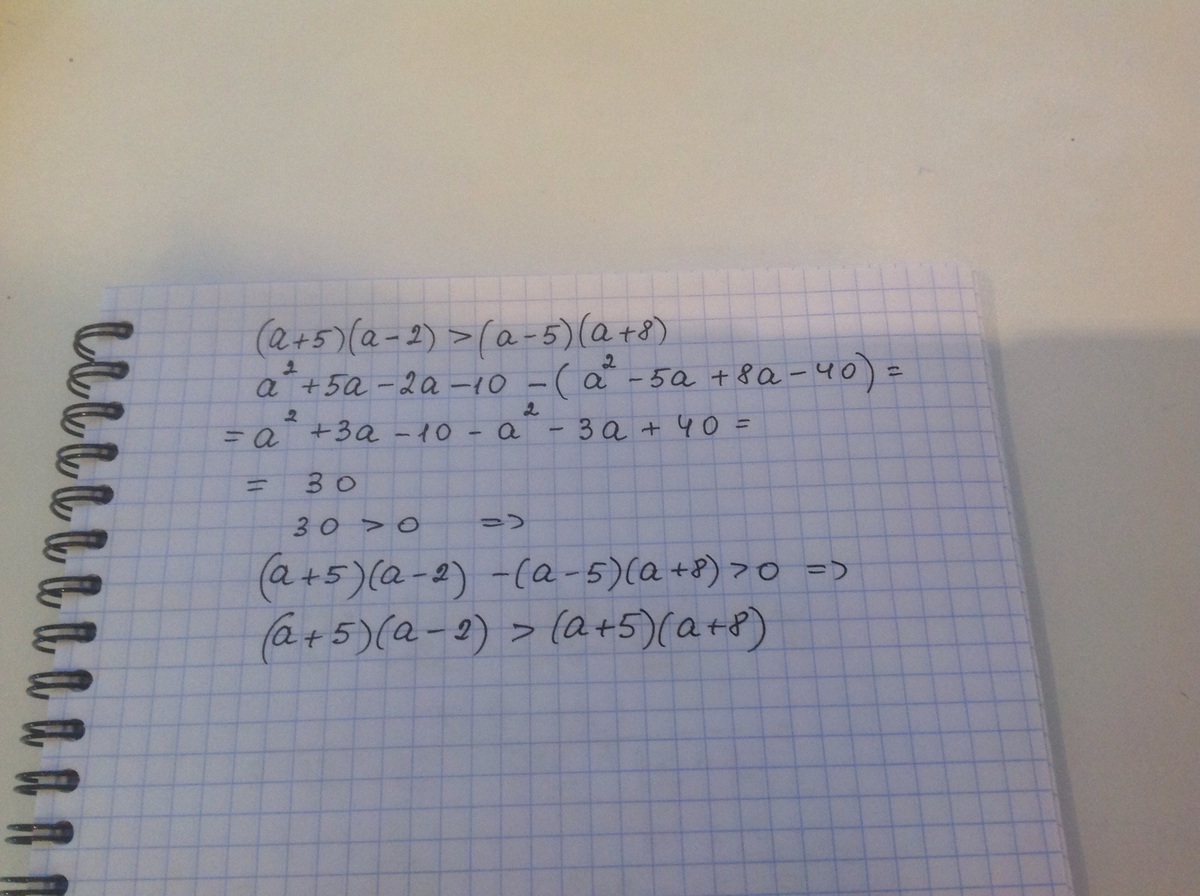 (a+5)(a-2) > (a-5)(a+8)
a² + 5a - 2a - 10 - (a² - 5a + 8a - 40) =
= a² + 3a - 10 - a² - 3a + 40 =
= 30
30 > 0 =>
(a+5)(a-2) - (a-5)(a+8) > 0 =>
(a+5)(a-2) > (a+5)(a+8)